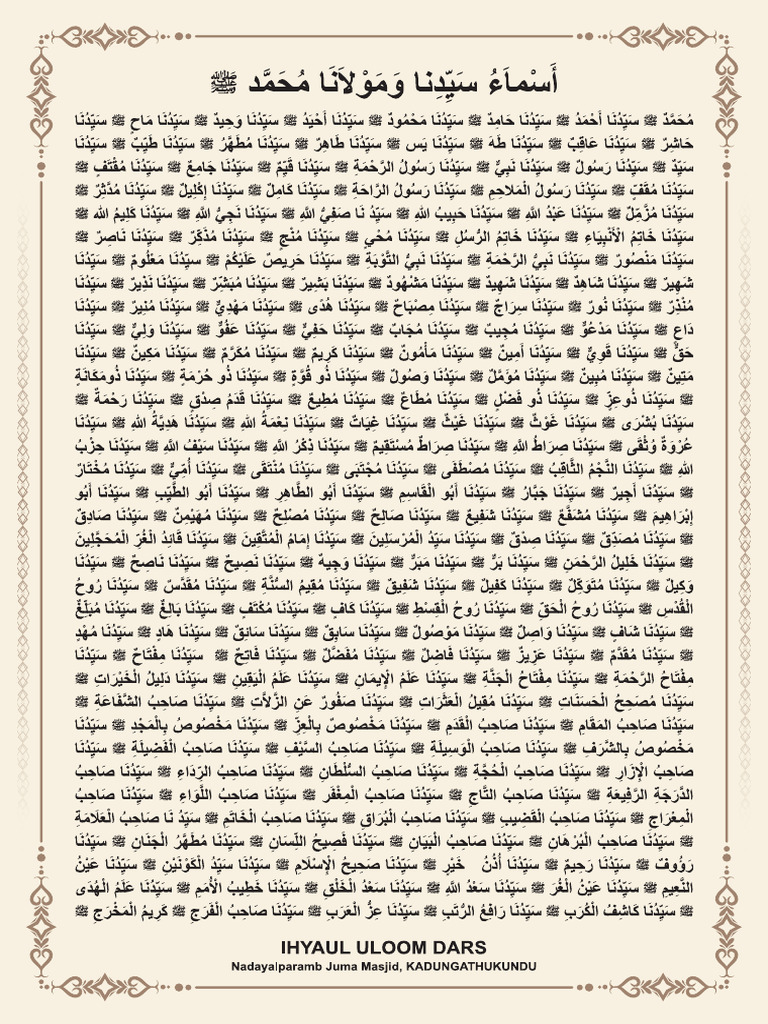 أَسْمَاءُ سَيِّدِنا وَمَوْلاَنَا مُحَمَّد ﷺ
مُحَمَّدٌ ﷺ سَيِّدُنَا أَحْمَدُ ﷺ سَيِّدُنَا حَامِدٌ ﷺ سَيِّدُنَا مَحْمُودٌ ﷺ سَيِّدُنَا أَحْيَدُ ﷺ سَيِّدُنَا وَحِيدٌ ﷺ سَيِّدُنَا مَاحٍ ﷺ سَيِّدُنَا
حَاشِرٌ ﷺ سَيِّدُنَا عَاقِبٌ ﷺ سَيِّدُنَا طَهَ ﷺ سَيِّدُنَا يَس ﷺ سَيِّدُنَا طَاهِرٌ ﷺ سَيِّدُنَا مُطَهَّرٌ ﷺ سَيِّدُنَا طَيِّبٌ ﷺ سَيِّدُنَا
سَيِّدٌ ﷺ سَيِّدُنَا رَسُولٌ ﷺ سَيِّدُنَا نَبِيٌّ ﷺ سَيِّدُنَا رَسُولُ الرَّحْمَةِ ﷺ سَيِّدُنَا قَيِّمٌ ﷺ سَيِّدُنَا جَامِعٌ ﷺ سَيِّدُنَا مُقْتَفٍ ﷺ
سَيِّدُنَا مُقَفٍّ ﷺ سَيِّدُنَا رَسُولُ الْمَلَاحِمِ ﷺ سَيِّدُنَا رَسُولُ الرَّاحَةِ ﷺ سَيِّدُنَا كَامِلٌ ﷺ سَيِّدُنَا إِكْلِيلٌ ﷺ سَيِّدُنَا مُدَّثِّرٌ ﷺ
سَيِّدُنَا مُزَّمِّلٌ ﷺ سَيِّدُنَا عَبْدُ اللهِ ﷺ سَيِّدُنَا حَبِيبُ اللهِ ﷺ سَيِّدُ نَا صَفِيُّ اللهِ ﷺ سَيِّدُنَا نَجِيُّ اللهِ ﷺ سَيِّدُنَا كَلِيمُ الله ﷺ
سَيِّدُنَا خَاتِمُ الْأَنْبِيَاءِ ﷺ سَيِّدُنَا خَاتِمُ الرُّسُلِ ﷺ سَيِّدُنَا مُحْيٍ ﷺ سَيِّدُنَا مُنْجٍ ﷺ سَيِّدُنَا مُذَكِّرٌ ﷺ سَيِّدُنَا نَاصِرٌ ﷺ
سَيِّدُنَا مَنْصُورٌ ﷺ سَيِّدُنَا نَبِيُّ الرَّحْمَةِ ﷺ سَيِّدُنَا نَبِيُّ التَّوْبَةِ ﷺ سَيِّدُنَا حَرِيصٌ عَلَيْكُمْ ﷺ سَيِّدُنَا مَعْلُومٌ ﷺ سَيِّدُنَا
شَهِيرٌ ﷺ سَيِّدُنَا شَاهِدٌ ﷺ سَيِّدُنَا شَهِيدٌ ﷺ سَيِّدُنَا مَشْهُودٌ ﷺ سَيِّدُنَا بَشِيرٌ ﷺ سَيِّدُنَا مُبَشِّرٌ ﷺ سَيِّدُنَا نَذِيرٌ ﷺ سَيِّدُنَا
مُنْذِرٌ ﷺ سَيِّدُنَا نُورٌ ﷺ سَيِّدُنَا سِرَاجٌ ﷺ سَيِّدُنَا مِصْبَاحٌ ﷺ سَيِّدُنَا هُدًى ﷺ سَيِّدُنَا مَهْدِيٌّ ﷺ سَيِّدُنَا مُنِيرٌ ﷺ سَيِّدُنَا
دَاعٍ ﷺ سَيِّدُنَا مَدْعُوٌّ ﷺ سَيِّدُنَا مُجِيبٌ ﷺ سَيِّدُنَا مُجَابٌ ﷺ سَيِّدُنَا حَفِيٌّ ﷺ سَيِّدُنَا عَفُوٌّ ﷺ سَيِّدُنَا وَلِيٌّ ﷺ سَيِّدُنَا
حَقٌّ ﷺ سَيِّدُنَا قَوِيٌّ ﷺ سَيِّدُنَا أَمِينٌ ﷺ سَيِّدُنَا مَأْمُونٌ ﷺ سَيِّدُنَا كَرِيمٌ ﷺ سَيِّدُنَا مُكَرَّمٌ ﷺ سَيِّدُنَا مَكِينٌ ﷺ سَيِّدُنَا
مَتِينٌ ﷺ سَيِّدُنَا مُبِينٌ ﷺ سَيِّدُنَا مُؤَمِّلٌ ﷺ سَيِّدُنَا وَصُولٌ ﷺ سَيِّدُنَا ذُو قُوَّةٍ ﷺ سَيِّدُنَا ذُو حُرْمَةٍ ﷺ سَيِّدُنَا ذُومَكَانَةٍ
ﷺ سَيِّدُنَا ذُوعِزٍّ ﷺ سَيِّدُنَا ذُو فَضْلٍ ﷺ سَيِّدُنَا مُطَاعٌ ﷺ سَيِّدُنَا مُطِيعٌ ﷺ سَيِّدُنَا قَدَمُ صِدْقٍ ﷺ سَيِّدُنَا رَحْمَةٌ ﷺ
سَيِّدُنَا بُشْرَى ﷺ سَيِّدُنَا غَوْثٌ ﷺ سَيِّدُنَا غَيْثٌ ﷺ سَيِّدُنَا غِيَاثٌ ﷺ سَيِّدُنَا نِعْمَةُ اللهِ ﷺ سَيِّدُنَا هَدِيَّةُ اللهِ ﷺ سَيِّدُنَا
عُرْوَةٌ وُثْقَى ﷺ سَيِّدُنَا صِرَاطُ اللهِ ﷺ سَيِّدُنَا صِرَاطٌ مُسْتَقِيمٌ ﷺ سَيِّدُنَا ذِكْرُ اللهِ ﷺ سَيِّدُنَا سَيْفُ اللهِ ﷺ سَيِّدُنَا حِزْبُ
اللهِ ﷺ سَيِّدُنَا النَّجْمُ الثَّاقِبُ ﷺ سَيِّدُنَا مُصْطَفَى ﷺ سَيِّدُنَا مُجْتَبَى ﷺ سَيِّدُنَا مُنْتَقَى ﷺ سَيِّدُنَا أُمِّيٌّ ﷺ سَيِّدُنَا مُخْتَارٌ
ﷺ سَيِّدُنَا أَجِيرٌ ﷺ سَيِّدُنَا جَبَّارٌ ﷺ سَيِّدُنَا أَبُو الْقَاسِمِ ﷺ سَيِّدُنَا أَبُو الطَّاهِرِ ﷺ سَيِّدُنَا أَبُو الطَّيِّبِ ﷺ سَيِّدُنَا أَبُو
إِبْرَاهِيمَ ﷺ سَيِّدُنَا مُشَفَّعٌ ﷺ سَيِّدُنَا شَفِيعٌ ﷺ سَيِّدُنَا صَالِحٌ ﷺ سَيِّدُنَا مُصْلِحٌ ﷺ سَيِّدُنَا مُهَيْمِنٌ ﷺ سَيِّدُنَا صَادِقٌ
ﷺ سَيِّدُنَا مُصَدِّقٌ ﷺ سَيِّدُنَا صِدْقٌ ﷺ سَيِّدُنَا سَيِّدُ الْمُرْسَلِينَ ﷺ سَيِّدُنَا إِمَامُ الْمُتَّقِينَ ﷺ سَيِّدُنَا قَائِدُ الْغُرِّ الْمُحَجَّلِينَ
ﷺ سَيِّدُنَا خَلِيلُ الرَّحْمَنِ ﷺ سَيِّدُنَا بَرٌّ ﷺ سَيِّدُنَا مَبَرٌّ ﷺ سَيِّدُنَا وَجِيهٌ ﷺ سَيِّدُنَا نَصِيحٌ ﷺ سَيِّدُنَا نَاصِحٌ ﷺ سَيِّدُنَا
وَكِيلٌ ﷺ سَيِّدُنَا مُتَوَكِّلٌ ﷺ سَيِّدُنَا كَفِيلٌ ﷺ سَيِّدُنَا شَفِيقٌ ﷺ سَيِّدُنَا مُقِيمُ السُّنَّةِ ﷺ سَيِّدُنَا مُقَدَّسٌ ﷺ سَيِّدُنَا رُوحُ
الْقُدُسِ ﷺ سَيِّدُنَا رُوحُ الْحَقِّ ﷺ سَيِّدُنَا رُوحُ الْقِسْطِ ﷺ سَيِّدُنَا كَافٍ ﷺ سَيِّدُنَا مُكْتَفٍ ﷺ سَيِّدُنَا بَالِغٌ ﷺ سَيِّدُنَا مُبَلِّغٌ
ﷺ سَيِّدُنَا شَافٍ ﷺ سَيِّدُنَا وَاصِلٌ ﷺ سَيِّدُنَا مَوْصُولٌ ﷺ سَيِّدُنَا سَابِقٌ ﷺ سَيِّدُنَا سَائِقٌ ﷺ سَيِّدُنَا هَادٍ ﷺ سَيِّدُنَا مُهْدٍ
ﷺ سَيِّدُنَا مُقَدَّمٌ ﷺ سَيِّدُنَا عَزِيزٌ ﷺ سَيِّدُنَا فَاضِلٌ ﷺ سَيِّدُنَا مُفَضَّلٌ ﷺ سَيِّدُنَا فَاتِحٌ ﷺ سَيِّدُنَا مِفْتَاحٌ ﷺ سَيِّدُنَا
مِفْتَاحُ الرَّحْمَةِ ﷺ سَيِّدُنَا مِفْتَاحُ الْجَنَّةِ ﷺ سَيِّدُنَا عَلَمُ الْإِيمَانِ ﷺ سَيِّدُنَا عَلَمُ الْيَقِينِ ﷺ سَيِّدُنَا دَلِيلُ الْخَيْرَاتِ ﷺ
سَيِّدُنَا مُصَحِّحُ الْحَسَنَاتِ ﷺ سَيِّدُنَا مُقِيلُ الْعَثَرَاتِ ﷺ سَيِّدُنَا صَفُورٌ عَنِ الزَّلاَّتِ ﷺ سَيِّدُنَا صَاحِبُ الشَّفَاعَةِ ﷺ
سَيِّدُنَا صَاحِبُ الْمَقَامِ ﷺ سَيِّدُنَا صَاحِبُ الْقَدَمِ ﷺ سَيِّدُنَا مَخْصُوصٌ بِالْعِزِّ ﷺ سَيِّدُنَا مَخْصُوصٌ بِالْمَجْدِ ﷺ سَيِّدُنَا
مَخْصُوصٌ بِالشَّرَفِ ﷺ سَيِّدُنَا صَاحِبُ الْوَسِيلَةِ ﷺ سَيِّدُنَا صَاحِبُ السَّيْفِ ﷺ سَيِّدُنَا صَاحِبُ الْفَضِيلَةِ ﷺ سَيِّدُنَا
صَاحِبُ الْإِزَارِ ﷺ سَيِّدُنَا صَاحِبُ الْحُجَّةِ ﷺ سَيِّدُنَا صَاحِبُ السُّلْطَانِ ﷺ سَيِّدُنَا صَاحِبُ الرِّدَاءِ ﷺ سَيِّدُنَا صَاحِبُ
الدَّرَجَةِ الرَّفِيعَةِ ﷺ سَيِّدُنَا صَاحِبُ التَّاجِ ﷺ سَيِّدُنَا صَاحِبُ الْمِغْفَرِ ﷺ سَيِّدُنَا صَاحِبُ اللِّوَاءِ ﷺ سَيِّدُنَا صَاحِبُ
الْمِعْرَاجِ ﷺ سَيِّدُنَا صَاحِبُ الْقَضِيبِ ﷺ سَيِّدُنَا صَاحِبُ الْبُرَاقِ ﷺ سَيِّدُنَا صَاحِبُ الْخَاتَمِ ﷺ سَيِّدُ نَا صَاحِبُ الْعَلَامَةِ
ﷺ سَيِّدُنَا صَاحِبُ الْبُرْهَانِ ﷺ سَيِّدُنَا صَاحِبُ الْبَيَانِ ﷺ سَيِّدُنَا فَصِيحُ اللِّسَانِ ﷺ سَيِّدُنَا مُطَهَّرُ الْجَنَانِ ﷺ سَيِّدُنَا
رَؤُوفٌ ﷺ سَيِّدُنَا رَحِيمٌ ﷺ سَيِّدُنَا أُذُنُ خَيْرٍ ﷺ سَيِّدُنَا صَحِيحُ الْإِسْلَامِ ﷺ سَيِّدُنَا سَيِّدُ الْكَوْنَيْنِ ﷺ سَيِّدُنَا عَيْنُ
النَّعِيمِ ﷺ سَيِّدُنَا عَيْنُ الْغُرِّ ﷺ سَيِّدُنَا سَعْدُ اللهِ ﷺ سَيِّدُنَا سَعْدُ الْخَلْقِ ﷺ سَيِّدُنَا خَطِيبُ الْأُمَمِ ﷺ سَيِّدُنَا عَلَمُ الْهُدَى
ﷺ سَيِّدُنَا كَاشِفُ الْكُرَبِ ﷺ سَيِّدُنَا رَافِعُ الرُّتَبِ ﷺ سَيِّدُنَا عِزُّ الْعَرَبِ ﷺ سَيِّدُنَا صَاحِبُ الْفَرَجِ ﷺ كَرِيمُ الْمَخْرَجِ ﷺ
IHYAUL ULOOM DARS
Nadayalparamb Juma Masjid, KADUNGATHUKUNDU